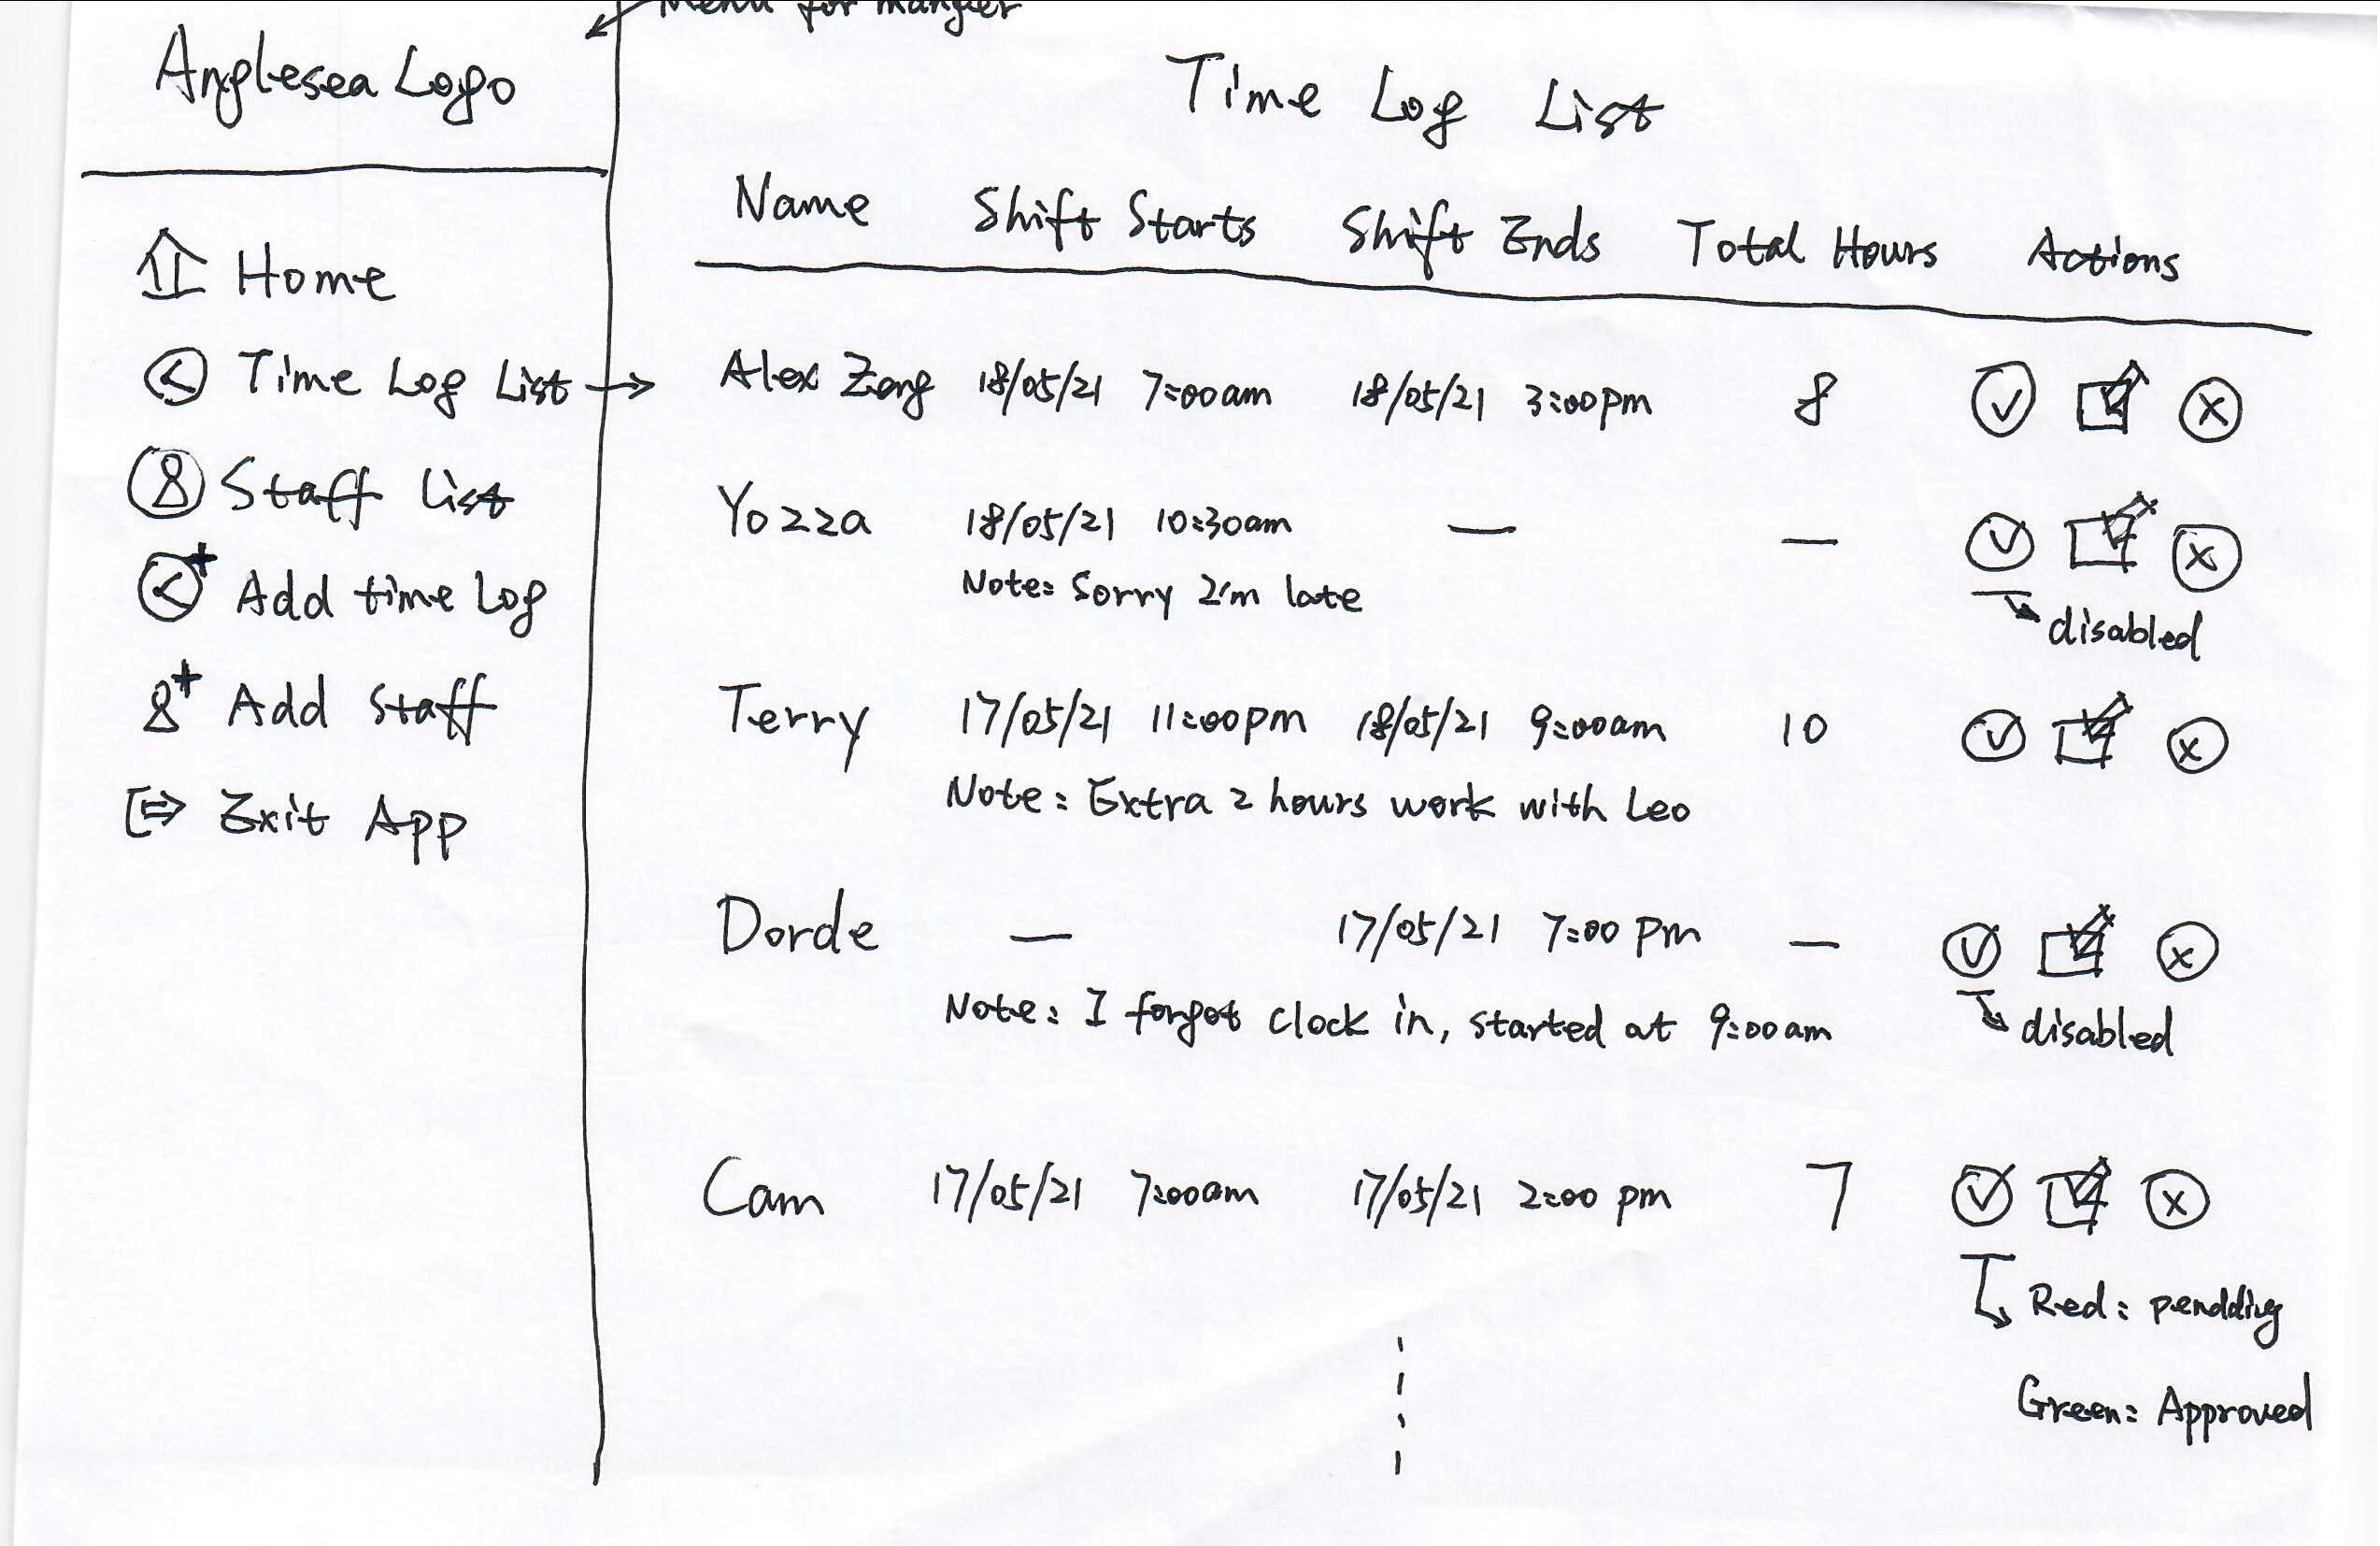 Menu for mangier
Anglesea Logo
Home
Time Log List
Staff List
Add time Log
Add Staff
Exit App
Time Log List
Name Shift Starts Shift Ends Total Hours Actions
Alex Zeng 18/05/21 7:00am 18/05/21 3:00pm 8
Yozza 18/05/21 10:30am — —
Note: Sorry I'm late
disabled
Terry 17/05/21 11:00pm 18/05/21 9:00am 10
Note: Extra 2 hours work with Leo
Dorde — 17/05/21 7:00 pm —
Note: I forgot clock in, started at 9:00am
disabled
Cam 17/05/21 7:00am 17/05/21 2:00 pm 7
Red: pendding
Green: Approved